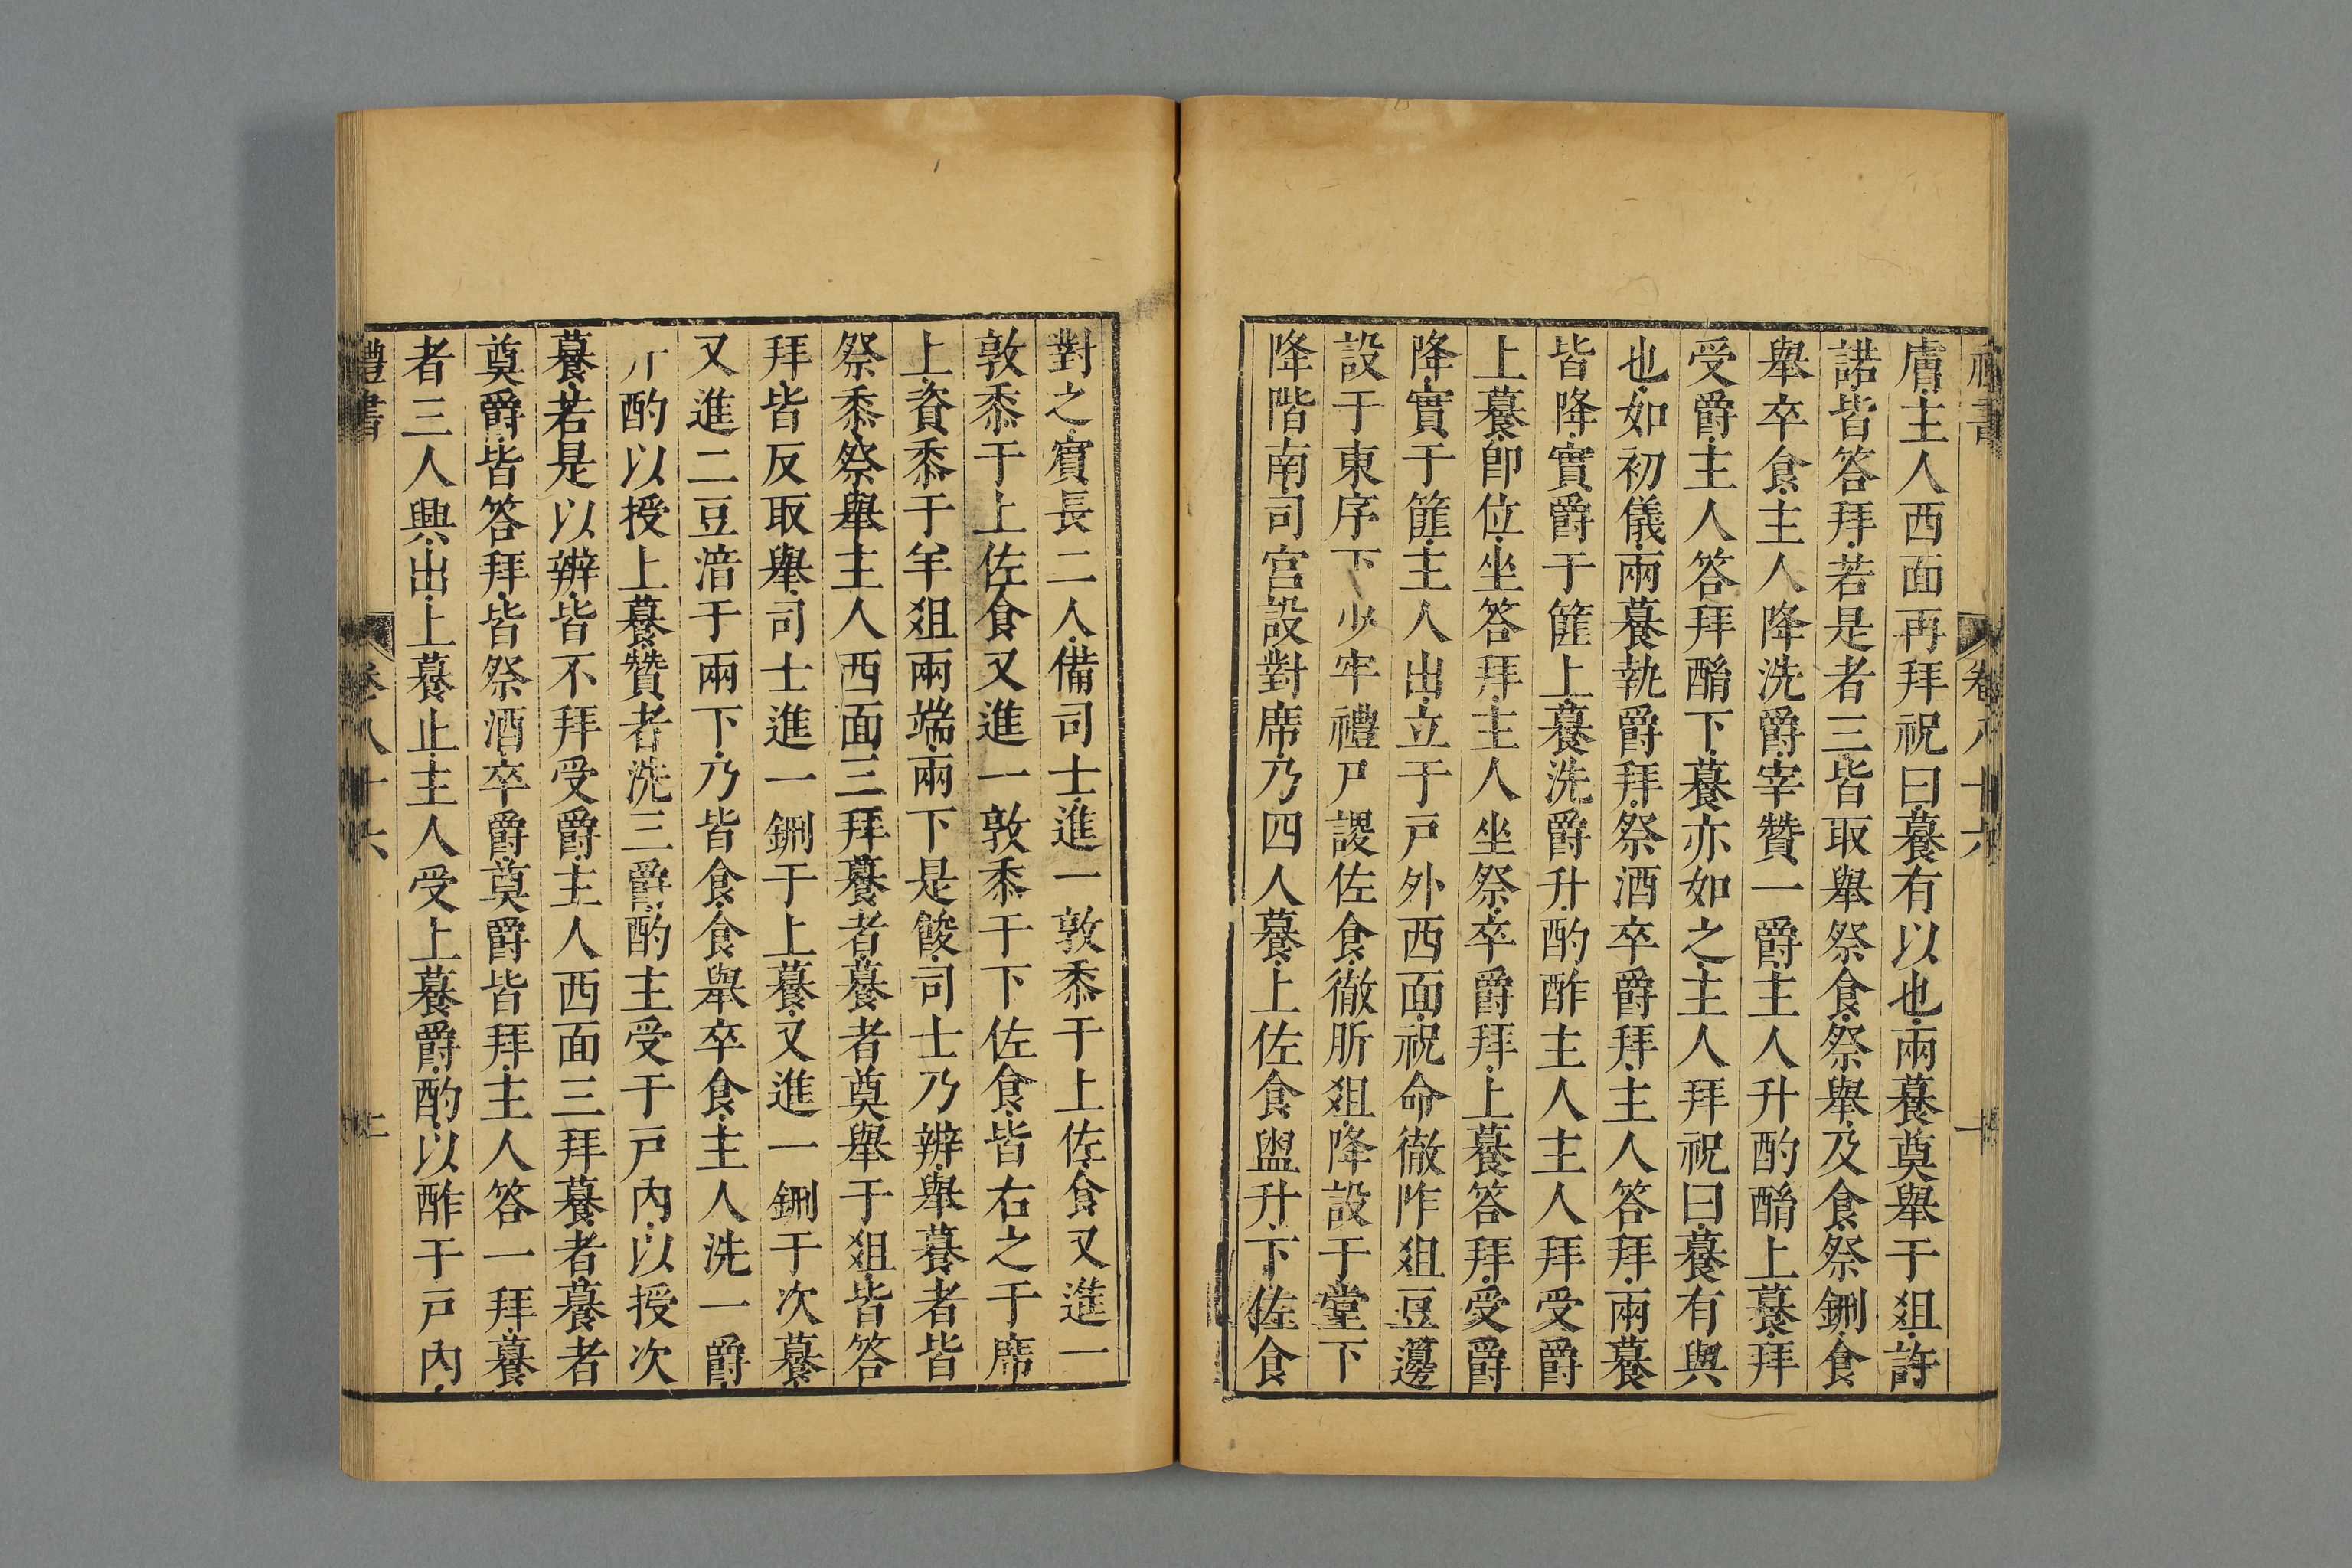 禮書 卷八十六 十
膚主人西面再拜祝曰䕩有以也兩䕩奠舉于俎許
諾皆答拜若是者三皆取舉祭食祭舉乃食祭鉶食
舉卒食主人降洗爵宰贊一爵主人升酌酳上䕩拜
受爵主人答拜酳下䕩亦如之主人拜祝曰䕩有與
也如初儀兩䕩執爵拜祭酒卒爵拜主人答拜兩䕩
皆降實爵于篚上䕩洗爵升酌酢主人主人拜受爵
上䕩卽位坐答拜主人坐祭卒爵拜上䕩答拜受爵
降實于篚主人出立于戸外西面祝命徹阼俎豆籩
設于東序下少牢禮尸謖佐食徹肵俎降設于堂下
降階南司宫設對席乃四人䕩上佐食盥升下佐食
對之賓長二人備司士進一敦黍于上佐食又進一
敦黍于上佐食又進一敦黍于下佐食皆右之于席
上資黍于羊俎兩端兩下是餕司士乃辨舉䕩者皆
祭黍祭舉主人西面三拜䕩者䕩者奠舉于俎皆答
拜皆反取舉司士進一鉶于上䕩又進一鉶于次䕩
又進二豆湆于兩下乃皆食食舉卒食主人洗一爵
升酌以授上䕩贊者洗三爵酌主受于戸内以授次
䕩若是以辨皆不拜受爵主人西面三拜䕩者䕩者
奠爵皆答拜皆祭酒卒爵奠爵皆拜主人答一拜䕩
者三人興出上䕩止主人受上䕩爵酌以酢于戸内
禮書 卷八十六